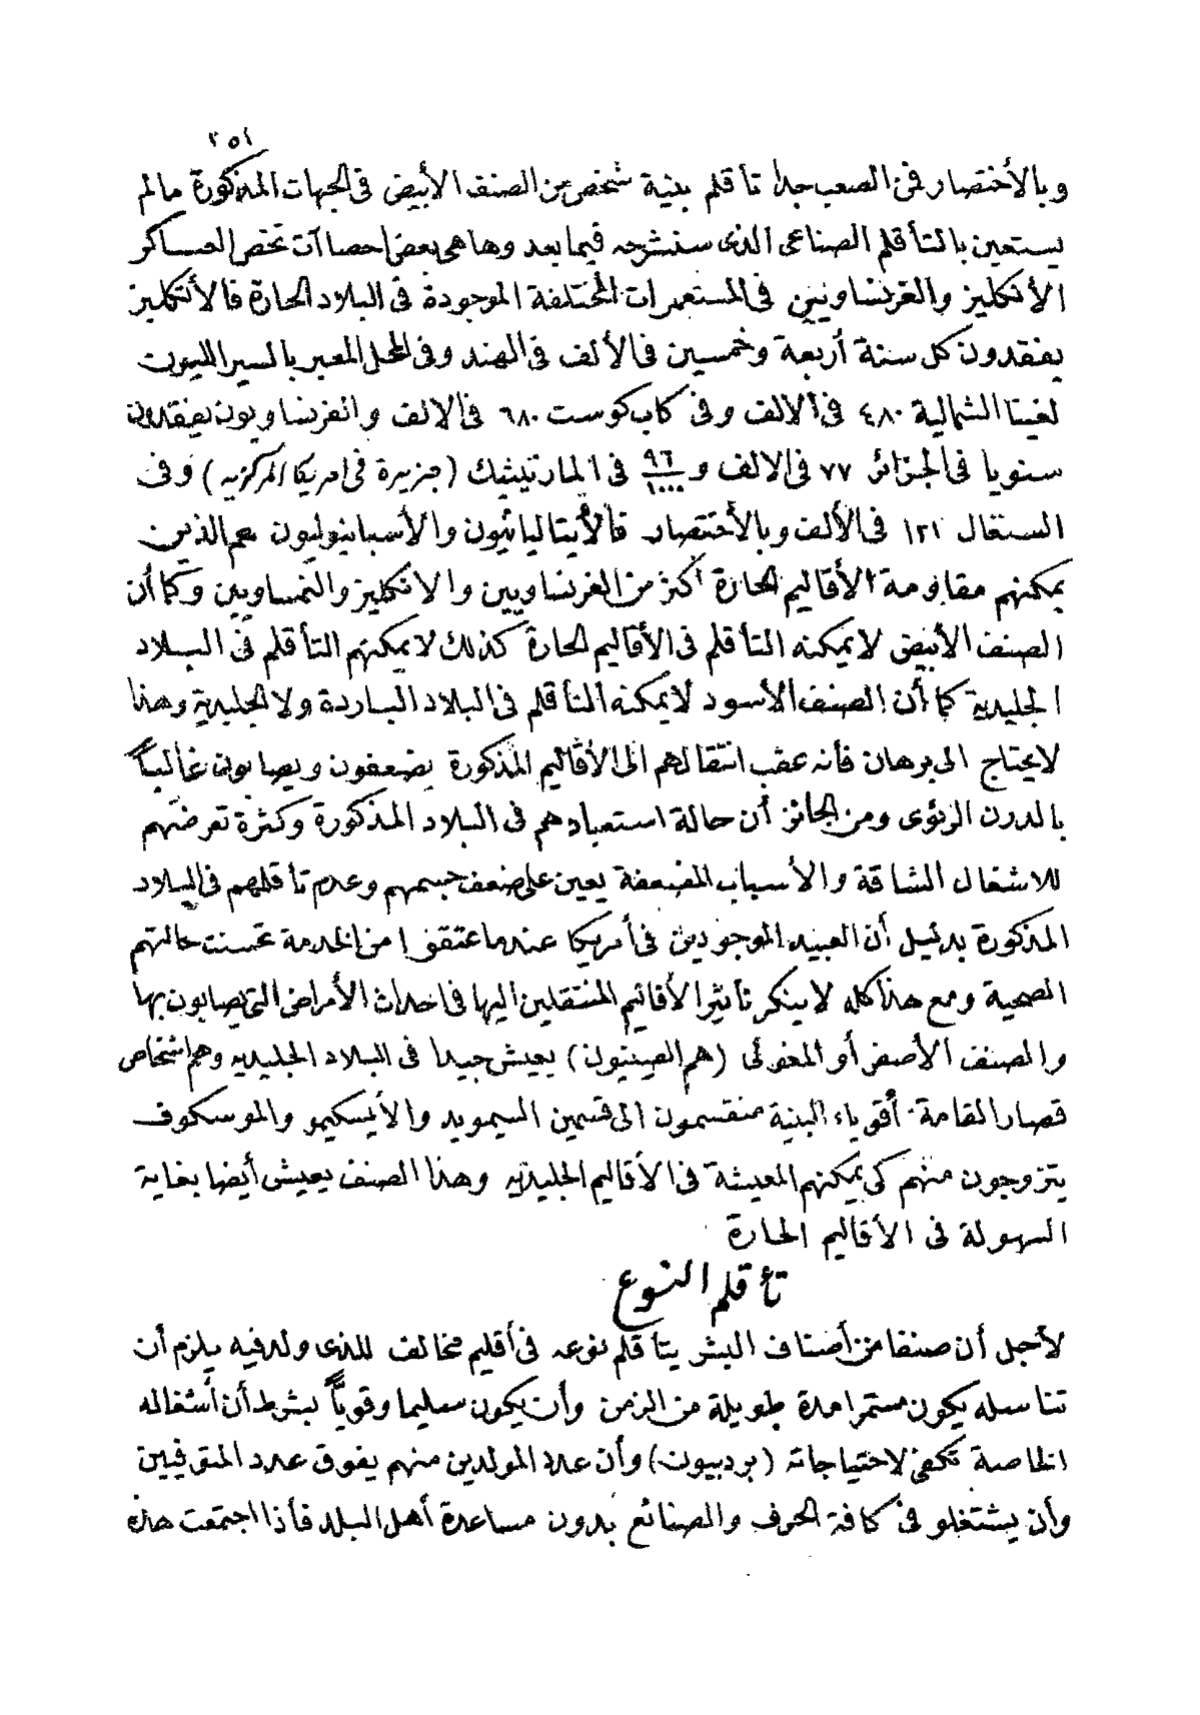 ٢٥١
وبالأختصار فمن الصعب جدا تأقلم بنية شخص من الصنف الأبيض فى الجهات المذكورة مالم
يستعين بالتأقلم الصناعى الذى سنشرحه فيما بعد وها هى بعض احصاآت تخص العساكر
الأنكليز والفرنساويين فى المستعمرات المختلفة الموجودة فى البلاد الحارة فالأنكليز
يفقدون كل سنة أربعة وخمسين فى الألف فى الهند وفى المحل المعبر بالسيراليون
لغينا الشمالية ٤٨٠ فى الالف وفى كاب كوست ٦٨٠ فى الالف والفرنساويون يفقدون
سنويا فى الجزائر ٧٧ فى الالف و ٩٦/١٠٠٠ فى المارتينيك (جزيرة فى امريكا المركزيه) وفى
السنغال ١٢١ فى الألف وبالأختصار فالأيتاليانيون والأسبانيوليون هم الذين
يمكنهم مقاومة الأقاليم الحارة أكثر من الفرنساويين والانكليز والنمساويين وكما أن
الصنف الأبيض لا يمكنه التأقلم فى الأقاليم الحارة كذلك لا يمكنهم التأقلم فى البلاد
الجليدية كما أن الصنف الأسود لا يمكنه التأقلم فى البلاد الباردة ولا الجليدية وهذا
لايحتاج الى برهان فأنه عقب انتقالهم الى الأقاليم المذكورة يضعفون ويصابون غالباً
بالدرن الرئوى ومن الجائز أن حالة استعبادهم فى البلاد المذكورة وكثرة تعرضهم
للاشغال الشاقة والأسباب المضعفة يعين على ضعف جسمهم وعدم تأقلمهم فى البلاد
المذكورة بدليل أن العبيد الموجودين فى أمريكا عندما عتقوا من الخدمة تحسنت حالتهم
الصحية ومع هذا كله لا ينكر تأثير الأقاليم المنتقلين اليها فى احداث الأمراض التى يصابون بها
والصنف الأصفر أو المغولى (هم الصينيون) يعيش جيدا فى البلاد الجليديه وهم اشخاص
قصار القامة أقوياء البنية منقسمون الى قسمين السيمويد والأيسكيمو والموسكوف
يتزوجون منهم كى يمكنهم المعيشة فى الأقاليم الجليديه وهذا الصنف يعيش أيضا بغاية
السهولة فى الأقاليم الحارة
تأقلم النوع
لأجل أن صنفا من أصناف البشر يتأقلم نوعه فى أقليم مخالف للذى ولد فيه يلزم أن
تناسله يكون مستمرا مدة طويلة من الزمن وأن يكون سليما وقوياً بشرط أن أشغاله
الخاصة تكفى لاحتياجاته (بردبيون) وأن عدد المولدين منهم يفوق عدد المتوفيين
وأن يشتغلو فى كافة الحرف والصنائع بدون مساعدة أهل البلد فأذا اجتمعت هذه